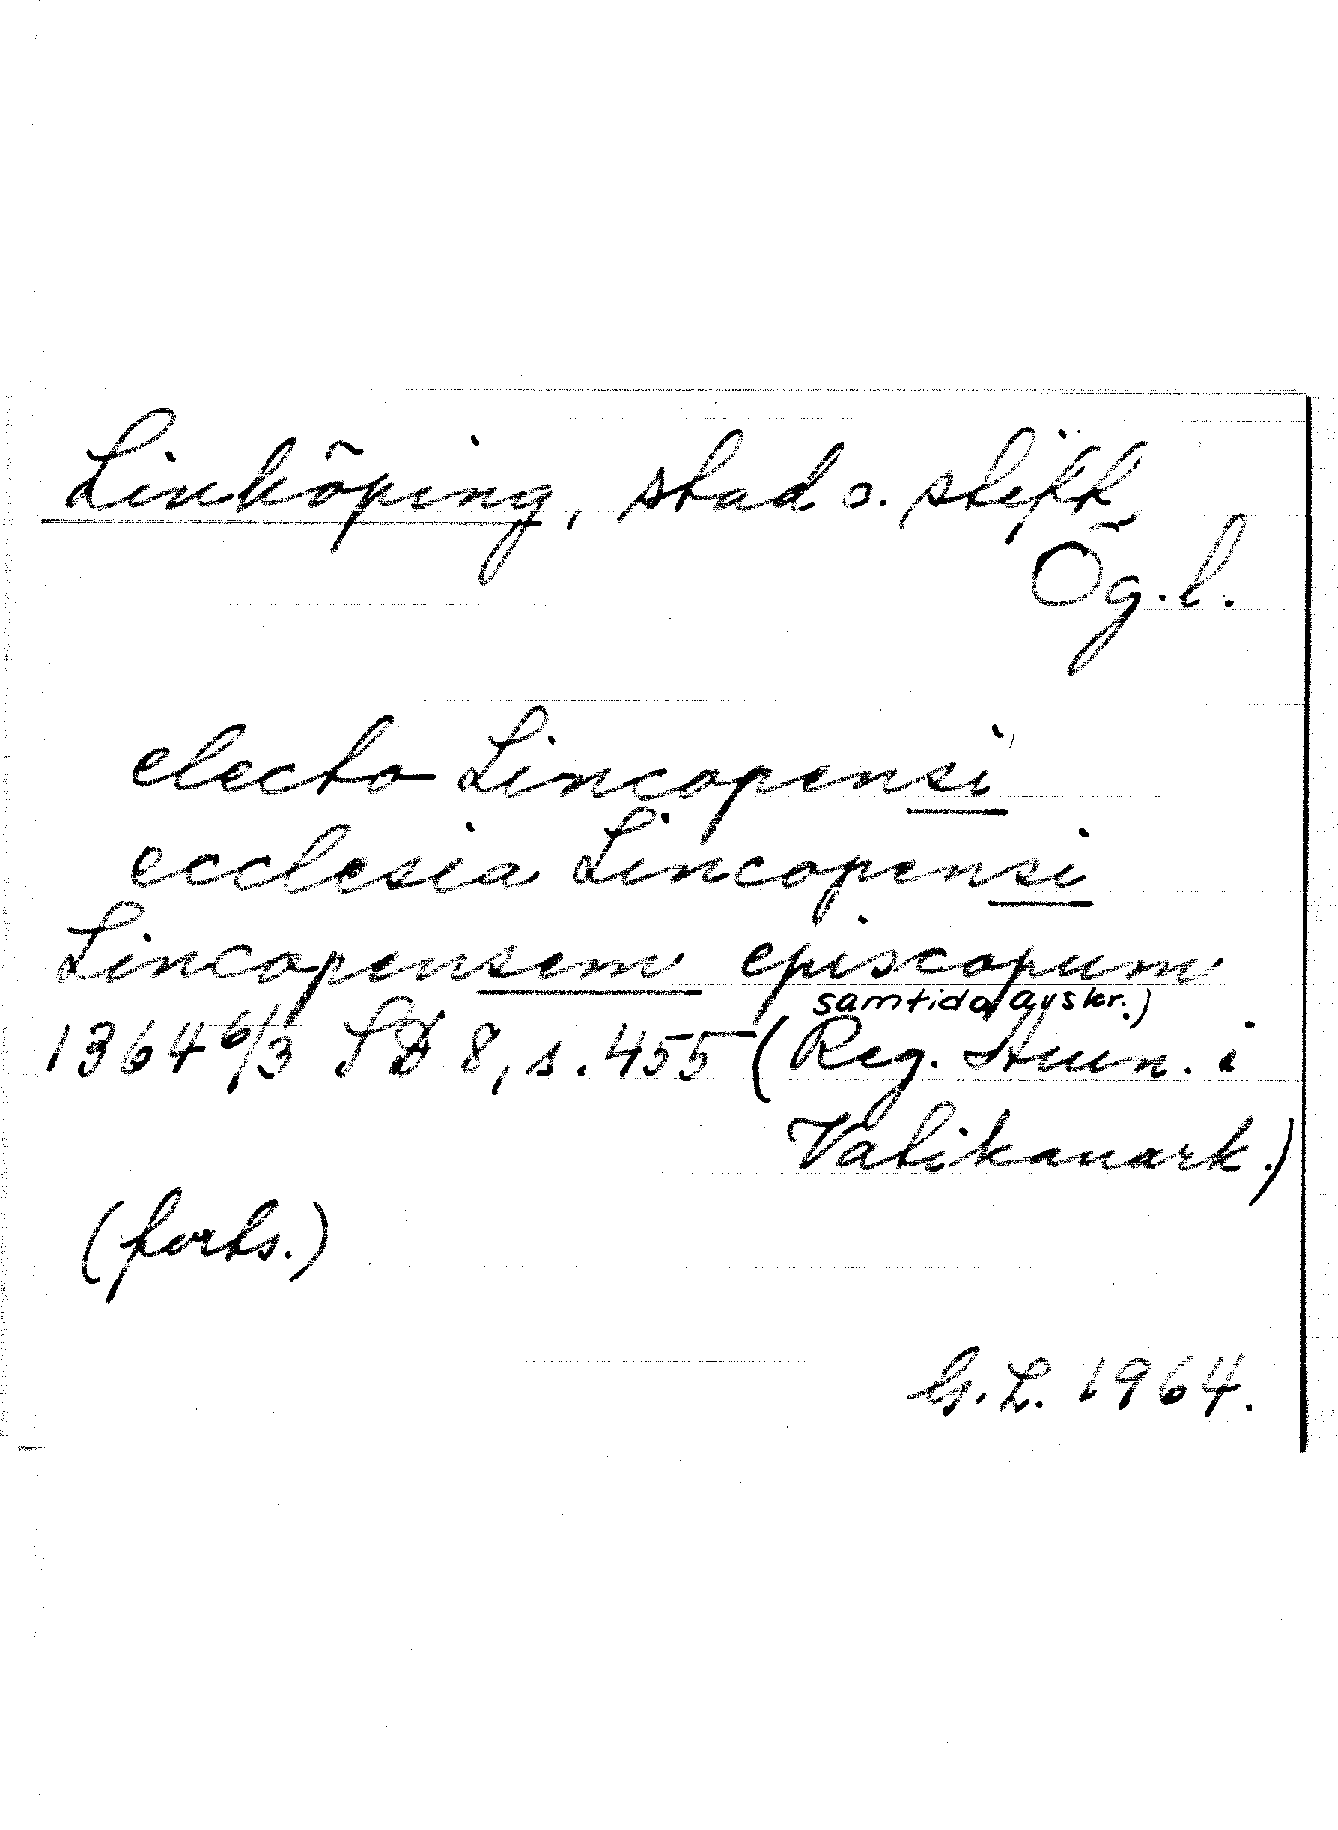 Linköping, stad o. stift,
Ög.l.
electo Lincopensi
ecclesia Lincopensi
Lincopensem episcopum
samtida avskr.)
1364 6/3 SD 8, s. 455 (Reg. Aven. i
Vatikanark.)
(forts.)
G.L. 1964.